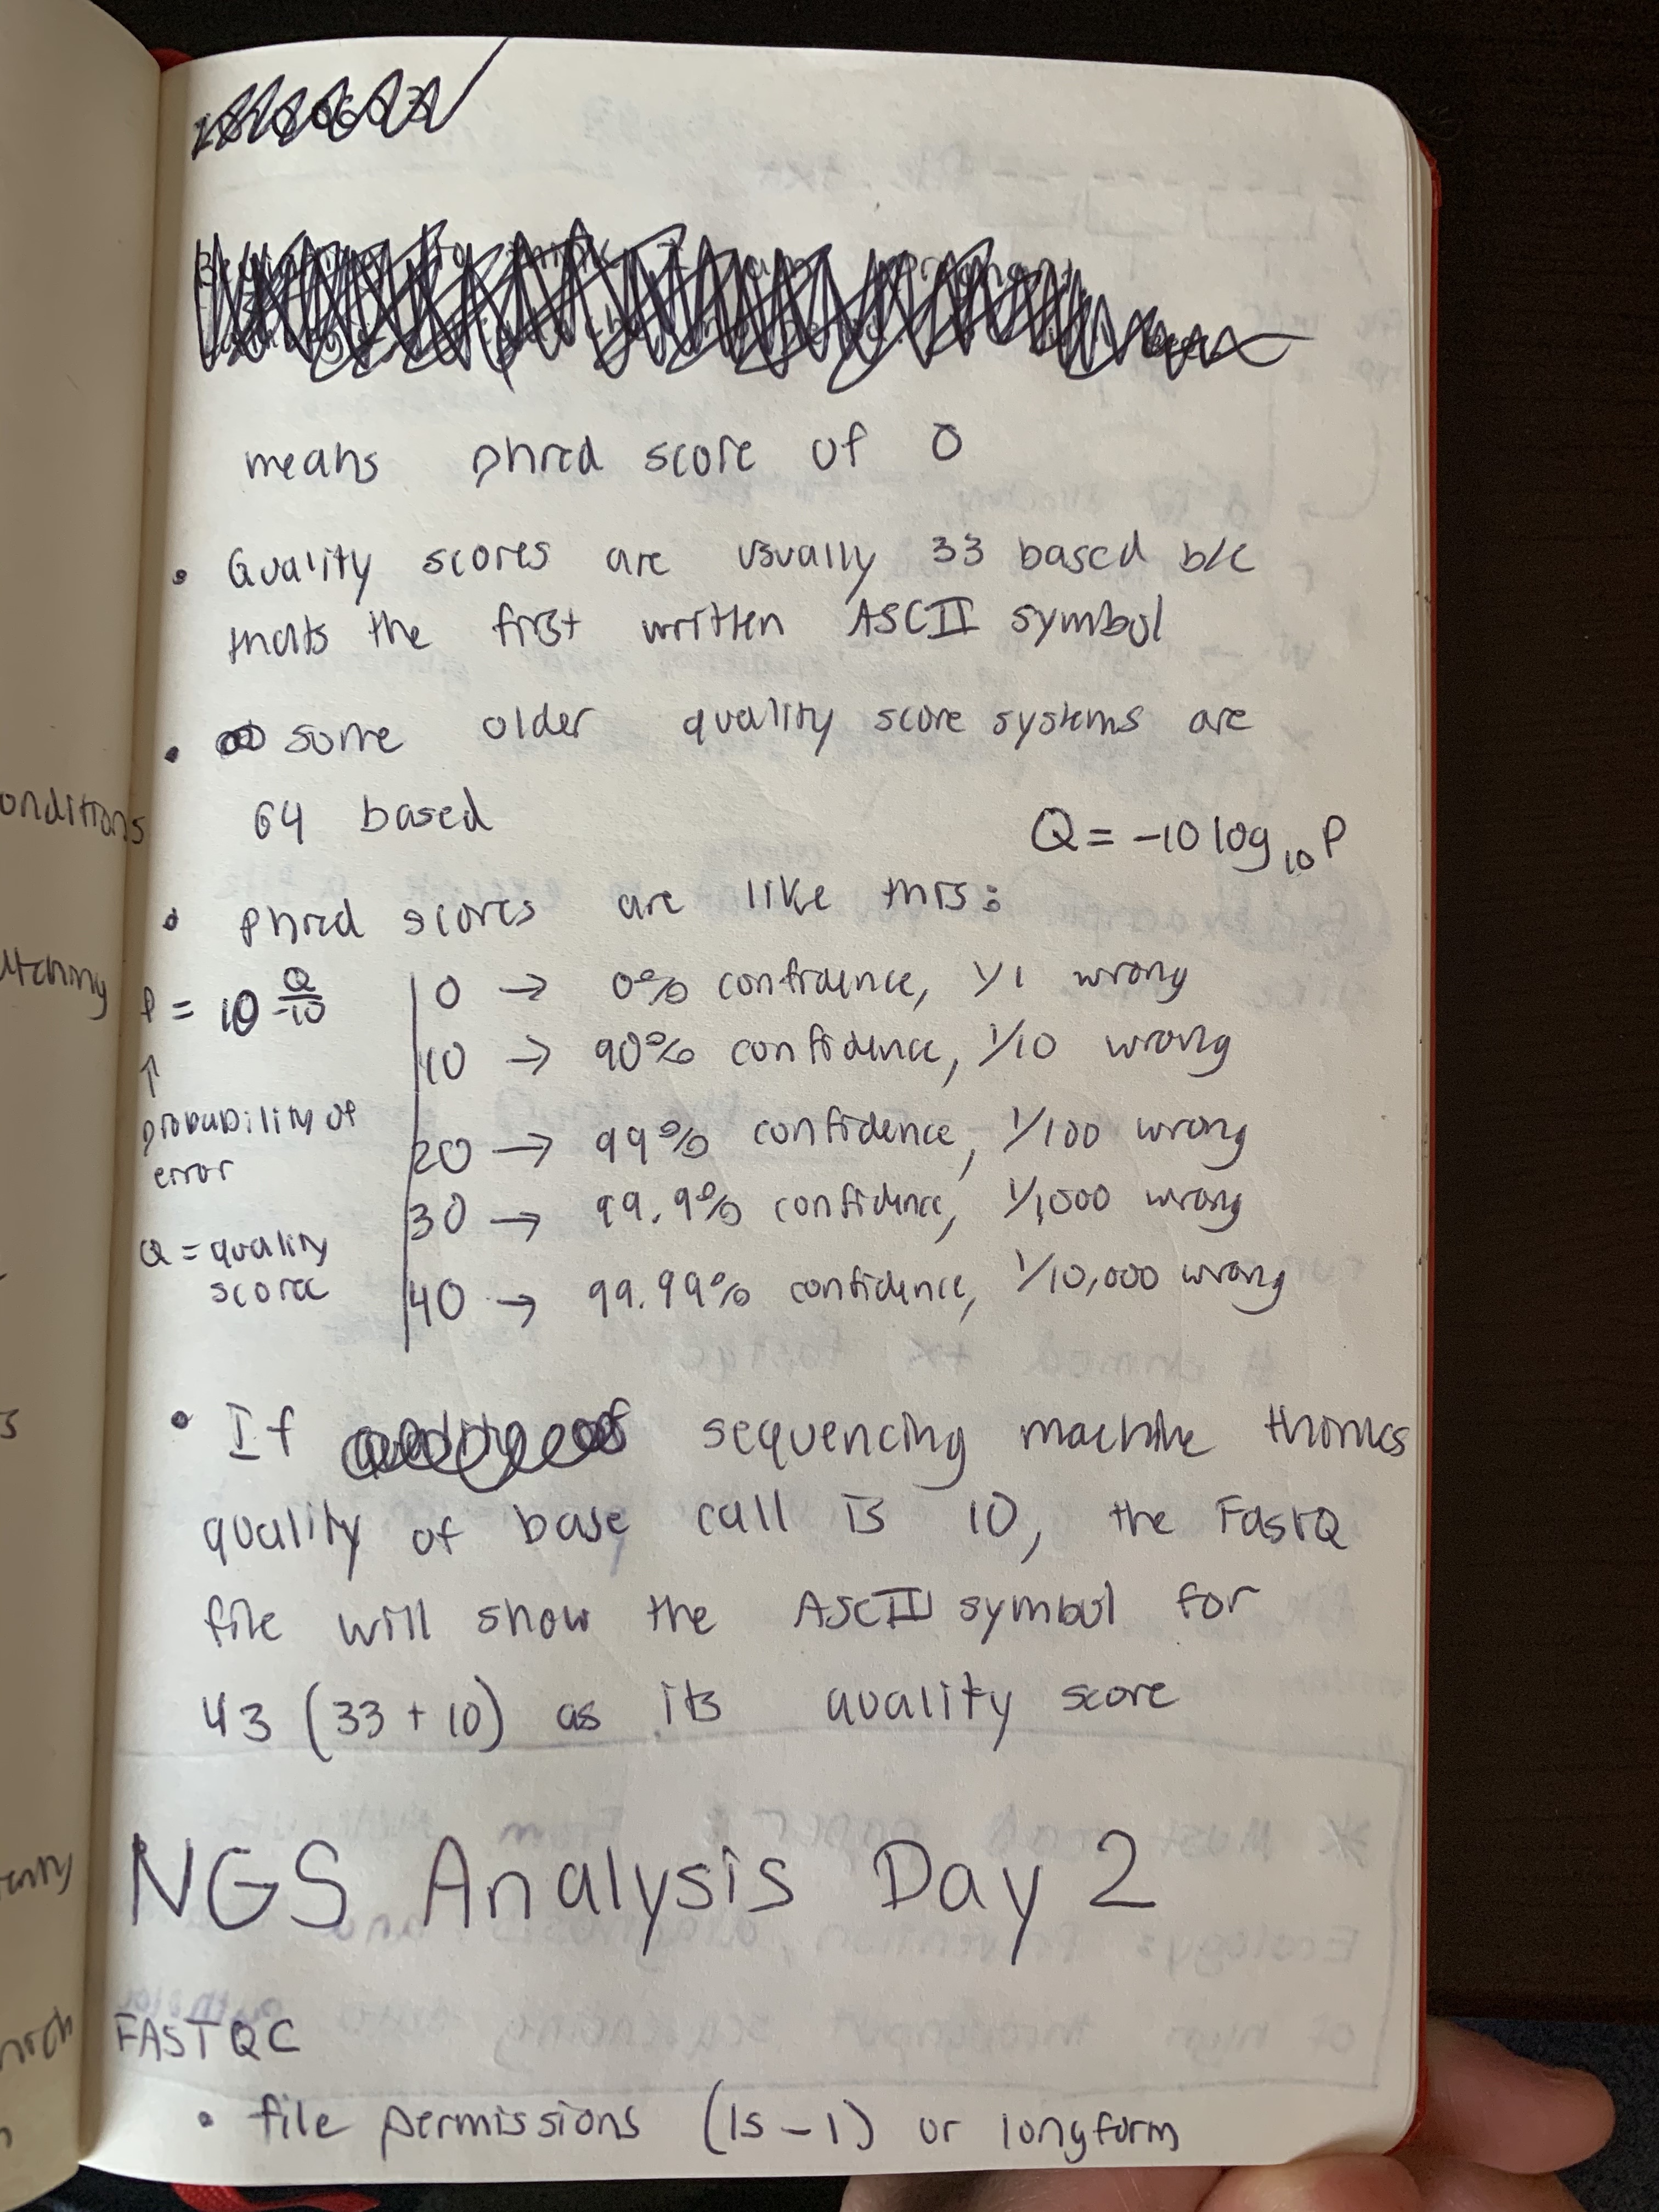 means phred score of 0
• Quality scores are usually 33 based b/c
thats the first written ASCII symbol
• some older quality score systems are
64 based
Q = -10 log10 P
• phred scores are like this:
P = 10 Q/-10
↑
probability of
error
Q = quality
score
0 → 0% confidence, 1/1 wrong
10 → 90% confidence, 1/10 wrong
20 → 99% confidence, 1/100 wrong
30 → 99.9% confidence, 1/1,000 wrong
40 → 99.99% confidence, 1/10,000 wrong
• If sequencing machine thinks
quality of base call is 10, the FastQ
file will show the ASCII symbol for
43 (33 + 10) as its quality score
NGS Analysis Day 2
FASTQC
• file permissions (ls -l) or longform